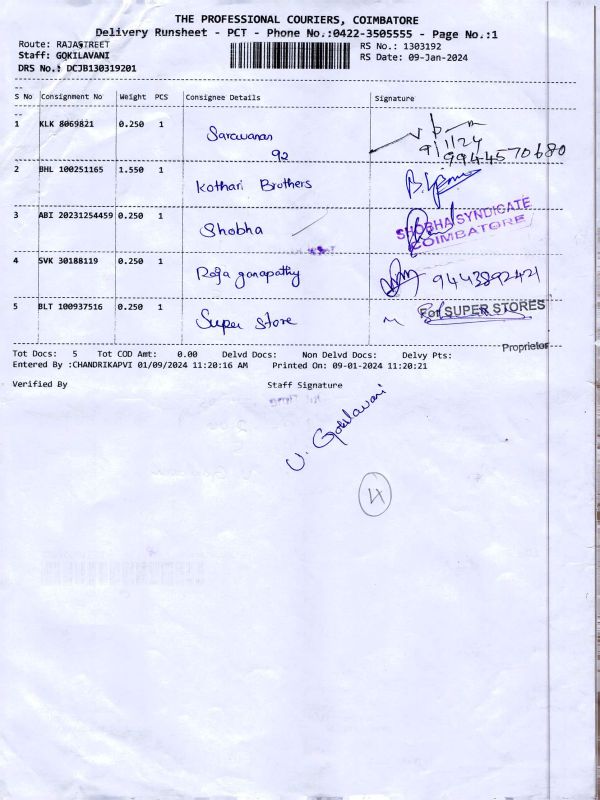 THE PROFESSIONAL COURIERS, COIMBATORE
Delivery Runsheet - PCT - Phone No.:0422-3505555 - Page No.:1
Route: RAJASTREET RS No.: 1303192
Staff: GOKILAVANI RS Date: 09-Jan-2024
DRS No.: DCJB130319201
S No Consignment No Weight PCS Consignee Details Signature
1 KLK 8069821 0.250 1 Saravanan 92 9/1/24 9944570680
2 BHL 100251165 1.550 1 Kothari Brothers
3 ABI 20231254459 0.250 1 Shobha SHOBHA SYNDICATE COIMBATORE
4 SVK 30188119 0.250 1 Roja ganapathy 9443892421
5 BLT 100937516 0.250 1 Super Store For SUPER STORES
Proprietor
Tot Docs: 5 Tot COD Amt: 0.00 Delvd Docs: Non Delvd Docs: Delvy Pts:
Entered By :CHANDRIKAPVI 01/09/2024 11:20:16 AM Printed On: 09-01-2024 11:20:21
Verified By Staff Signature
V. Gokilavani
4